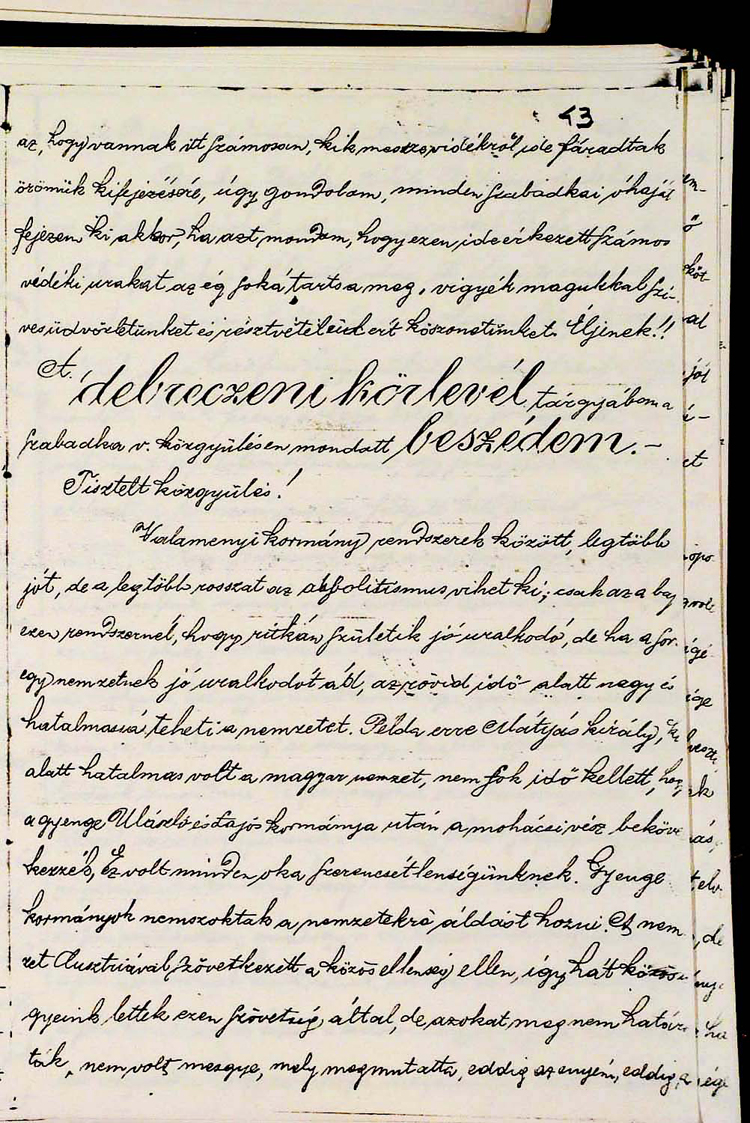 43
az, hogy vannak itt számosan, kik messze vidékről ide fáradtak
örömük kifejezésére, úgy gondolom, minden szabadkai óhaját
fejezem ki akkor, ha azt mondom, hogy ezen ide érkezett számos
vidéki urakat az ég soká tartsa meg, vigyék magukkal szi-
ves üdvözletünket és részvételeikért köszönetünket. Éljenek!!
A debreczeni körlevél tárgyában a
szabadka v. közgyülésen mondott beszédem.-
Tisztelt közgyülés!
Valamenyi kormány rendszerek között, legtöbb
jót, de a legtöbb rosszat az absolitismus vihet ki; csak az a baj
ezen rendszernél, hogy ritkán születik jó uralkodó, de ha a sor
egy nemzetnek jó uralkodót ád, az rövid idő alatt nagy és
hatalmassá teheti a nemzetet. Példa erre Mátyás király, ki
alatt hatalmas volt a magyar nemzet, nem sok idő kellett, hogy
a gyenge Ulászló és Lajos kormánya után a mohácsi vész beköve
kezzék, Ez volt minden oka szerencsétlenségünknek. Gyenge
kormányok nem szoktak a nemzetekre áldást hozni. A nem
zet Ausztriával szövetkezett a közös ellenség ellen, így hát közös
ügyeink lettek ezen szövetség által, de azokat meg nem határoz
ták, nem volt mesgye, mely megmutatta, eddig az enyém, eddig a